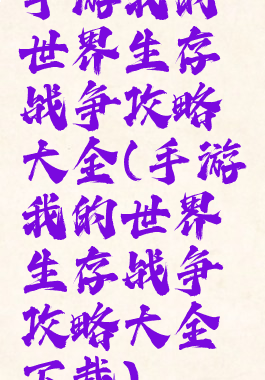 手游我的
世界生存
战争攻略
大全(手游
我的世界
生存战争
攻略大全
下载)